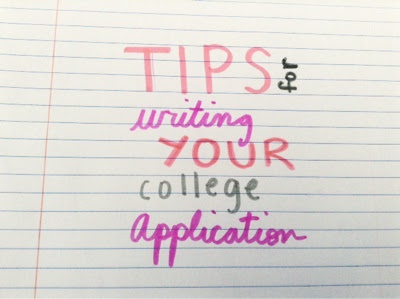 TIPS for
writing
YOUR
college
application